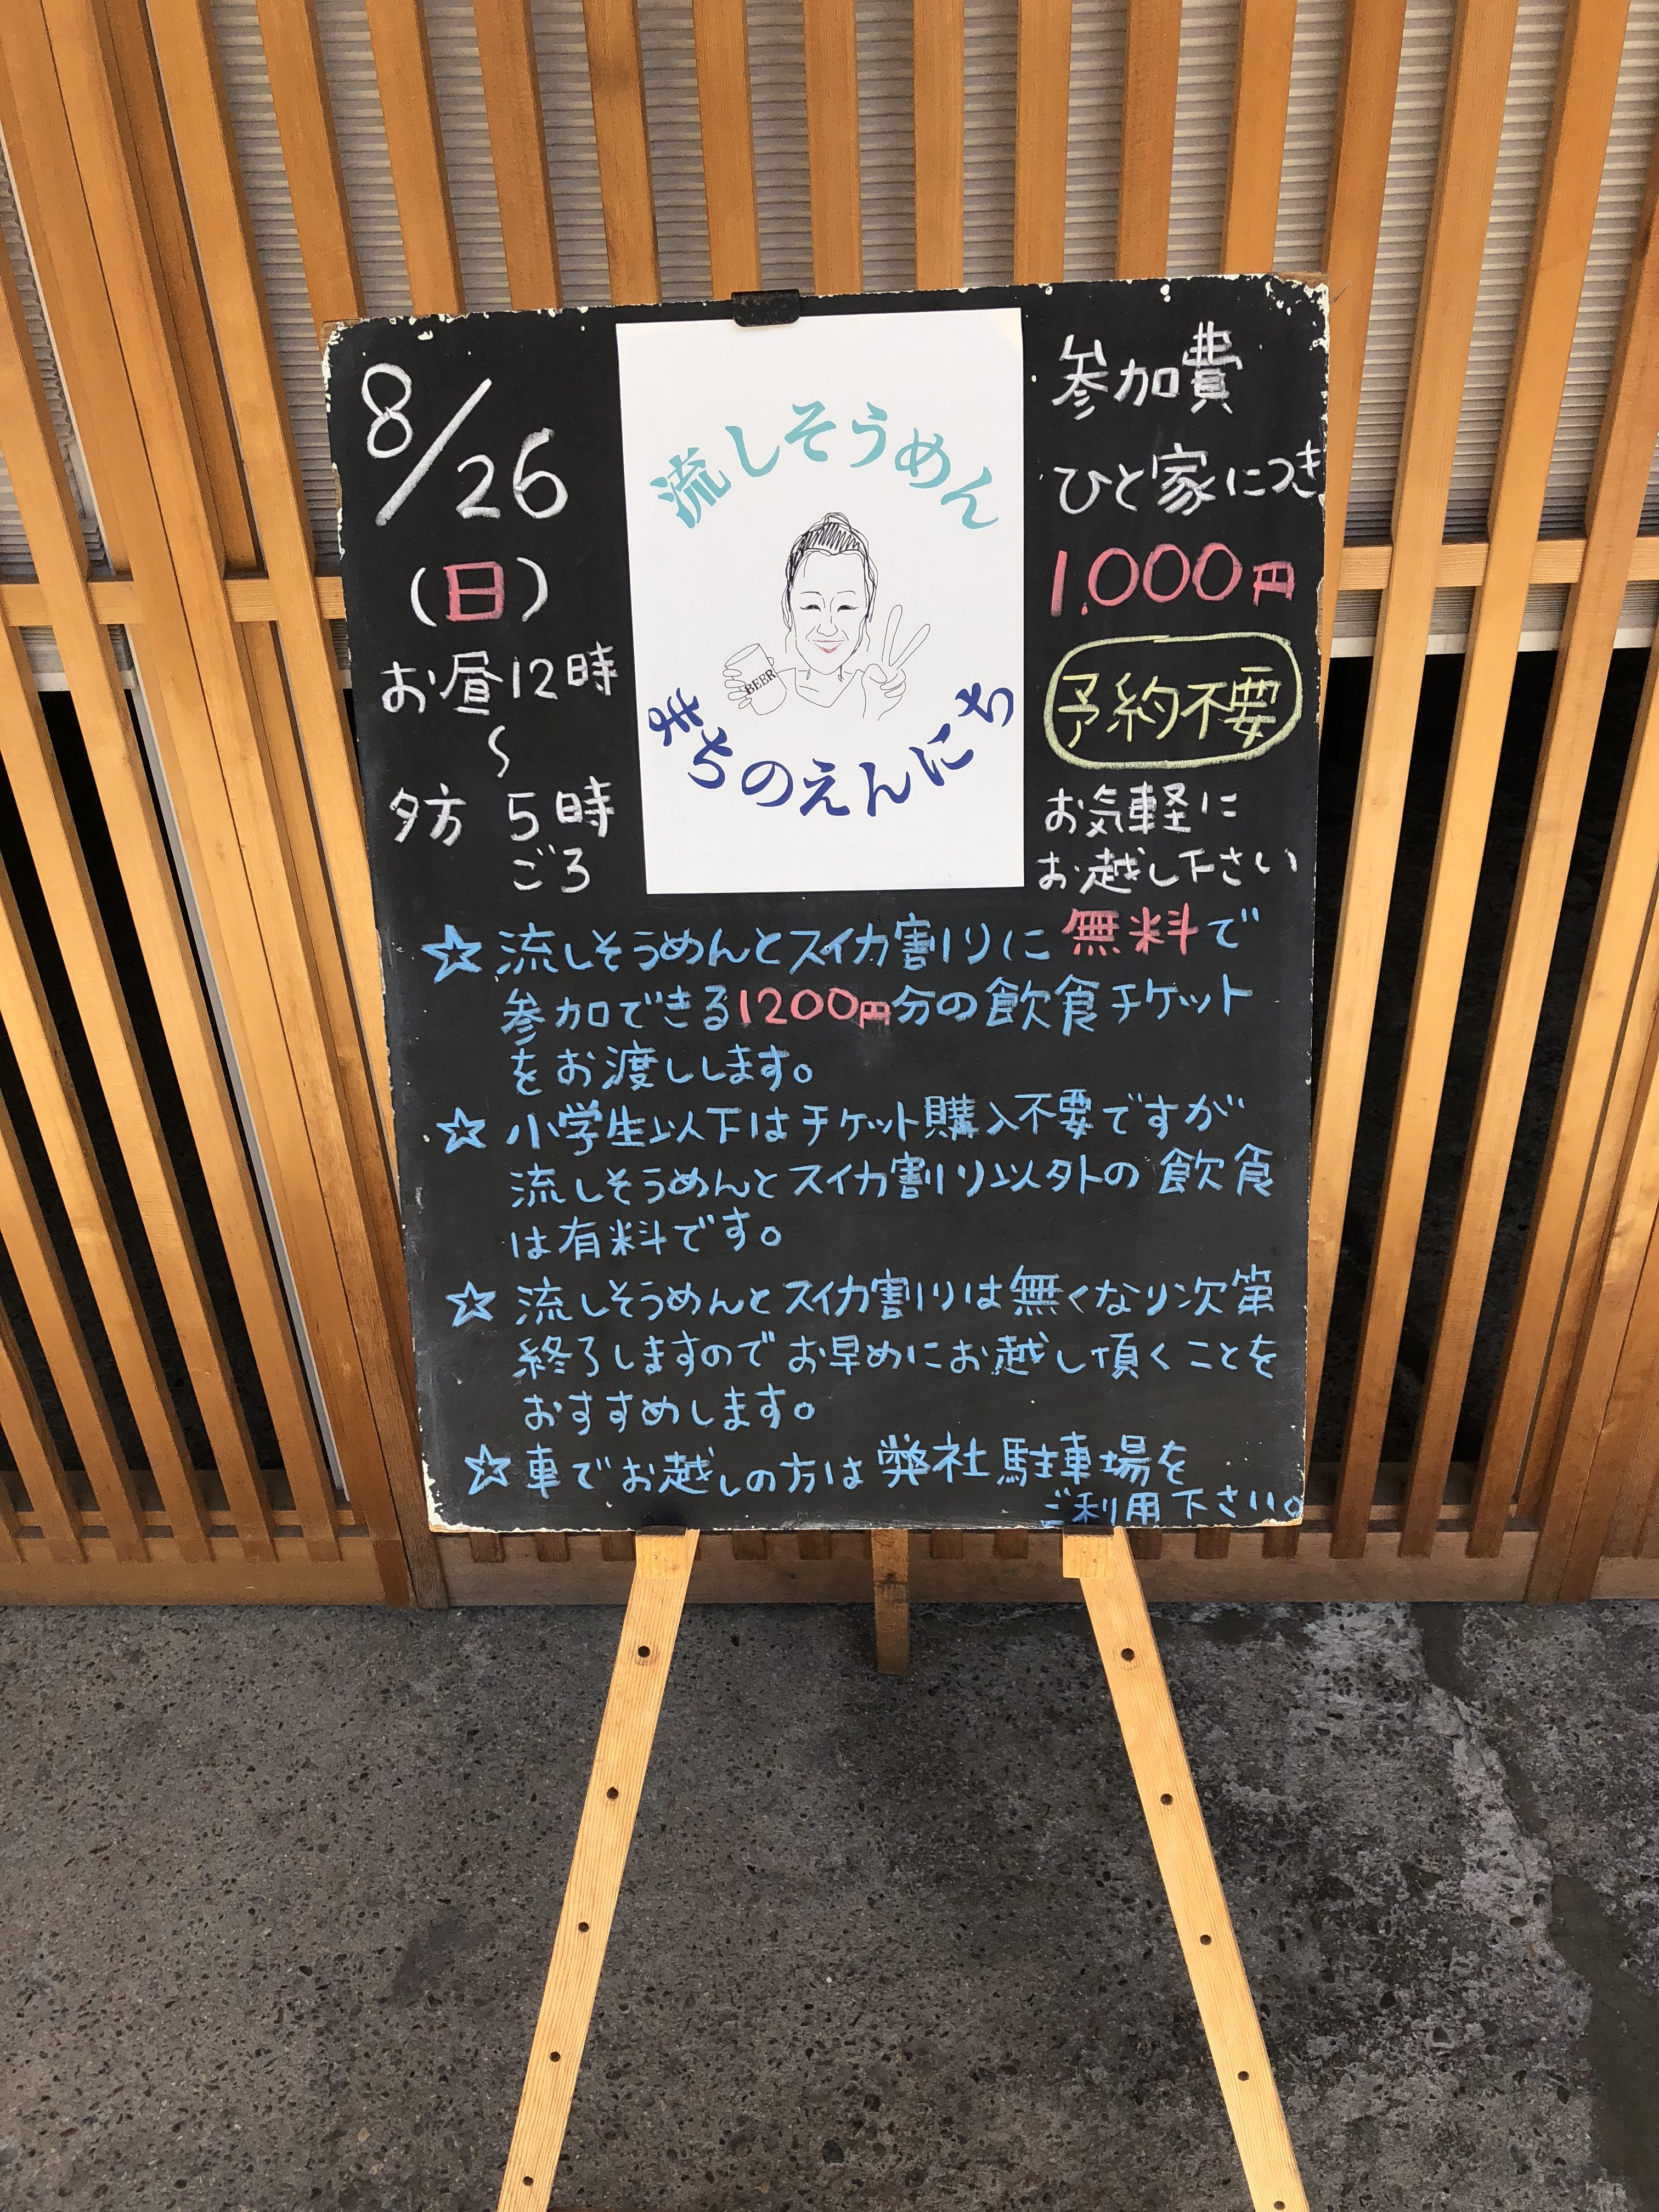 8/26
(日)
お昼12時
〜
夕方 5時
ごろ
流しそうめん
BEER
まちのえんにち
参加費
ひと家につき
1.000円
予約不要
お気軽に
お越し下さい
☆流しそうめんとスイカ割りに無料で
参加できる1200円分の飲食チケット
をお渡しします。
☆小学生以下はチケット購入不要ですが
流しそうめんとスイカ割り以外の飲食
は有料です。
☆流しそうめんとスイカ割りは無くなり次第
終了しますのでお早めにお越し頂くことを
おすすめします。
☆車でお越しの方は弊社駐車場を
ご利用下さい。